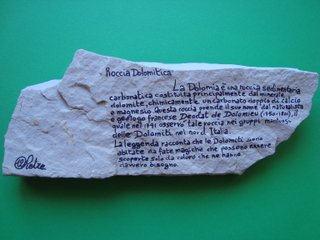 Roccia Dolomitica
La Dolomia è una roccia sedimentaria
carbonatica costituita principalmente dal minerale
dolomite, chimicamente un carbonato doppio di calcio
e magnesio. Questa roccia prende il suo nome dal naturalista
e geologo francese Deodat de Dolomieu (1750-1801), il
quale nel 1791 osservò tale roccia nei gruppi montuosi
delle Dolomiti nel nord Italia.
La leggenda racconta che le Dolomiti siano
abitate da fate magiche che possono essere
scoperte solo da coloro che ne hanno
davvero bisogno.